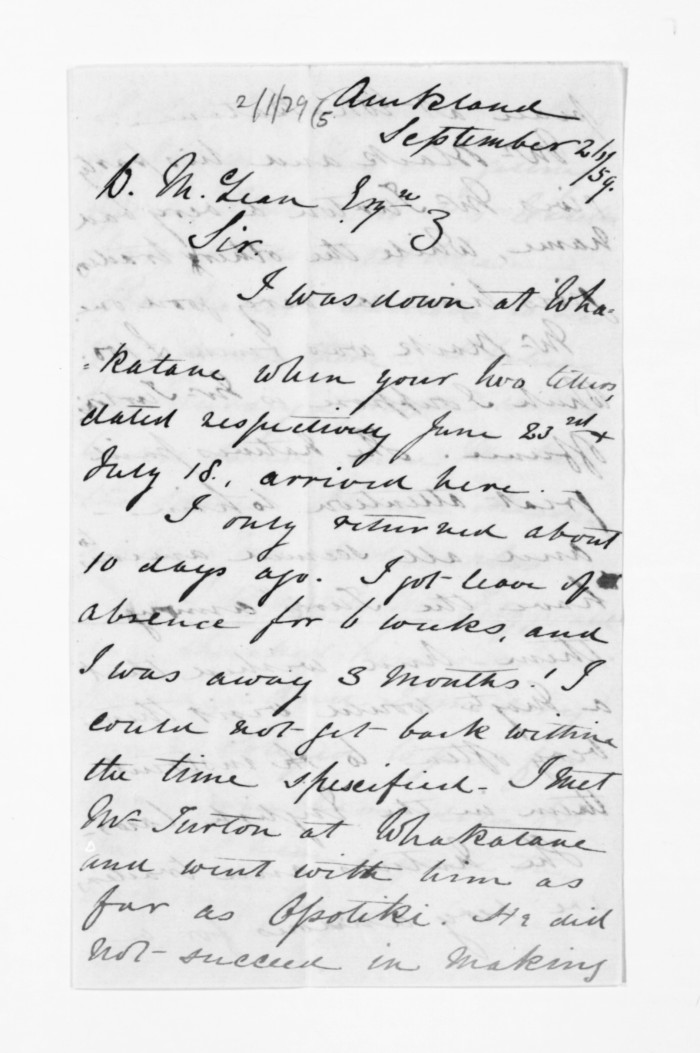 2/1/29/5. Auckland
September 2/59.
D. M. Lean Esqre
Sir
I was down at Wha-
=katane when your two letters,
dated respectively June 23rd &
July 18., arrived here.
I only returned about
10 days ago. I got leave of
absence for 6 weeks, and
I was away 3 months! I
could not get back within
the time spescified. I met
Mr Turton at Whakatane
and went with him as
far as Opotiki. He did
not succeed in making